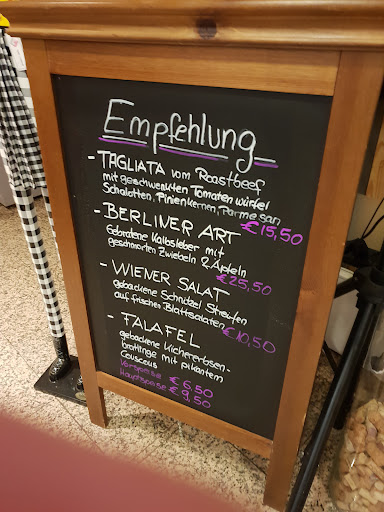 Empfehlung
- TAGLIATA vom Roastbeef
mit geschwenkten Tomatenwürfel
Schalotten, Pinienkernen, Parmesan
€ 15,50
- BERLINER ART
Gebratene Kalbsleber mit
geschmorten Zwiebeln & Äpfeln
€ 25,50
- WIENER SALAT
gebackene Schnitzel Streifen
auf frischen Blattsalaten
€ 10,50
- FALAFEL
gebackene Kichererbsen-
bratlinge mit pikantem
Couscous
Vorspeise € 6,50
Hauptspeise € 9,50